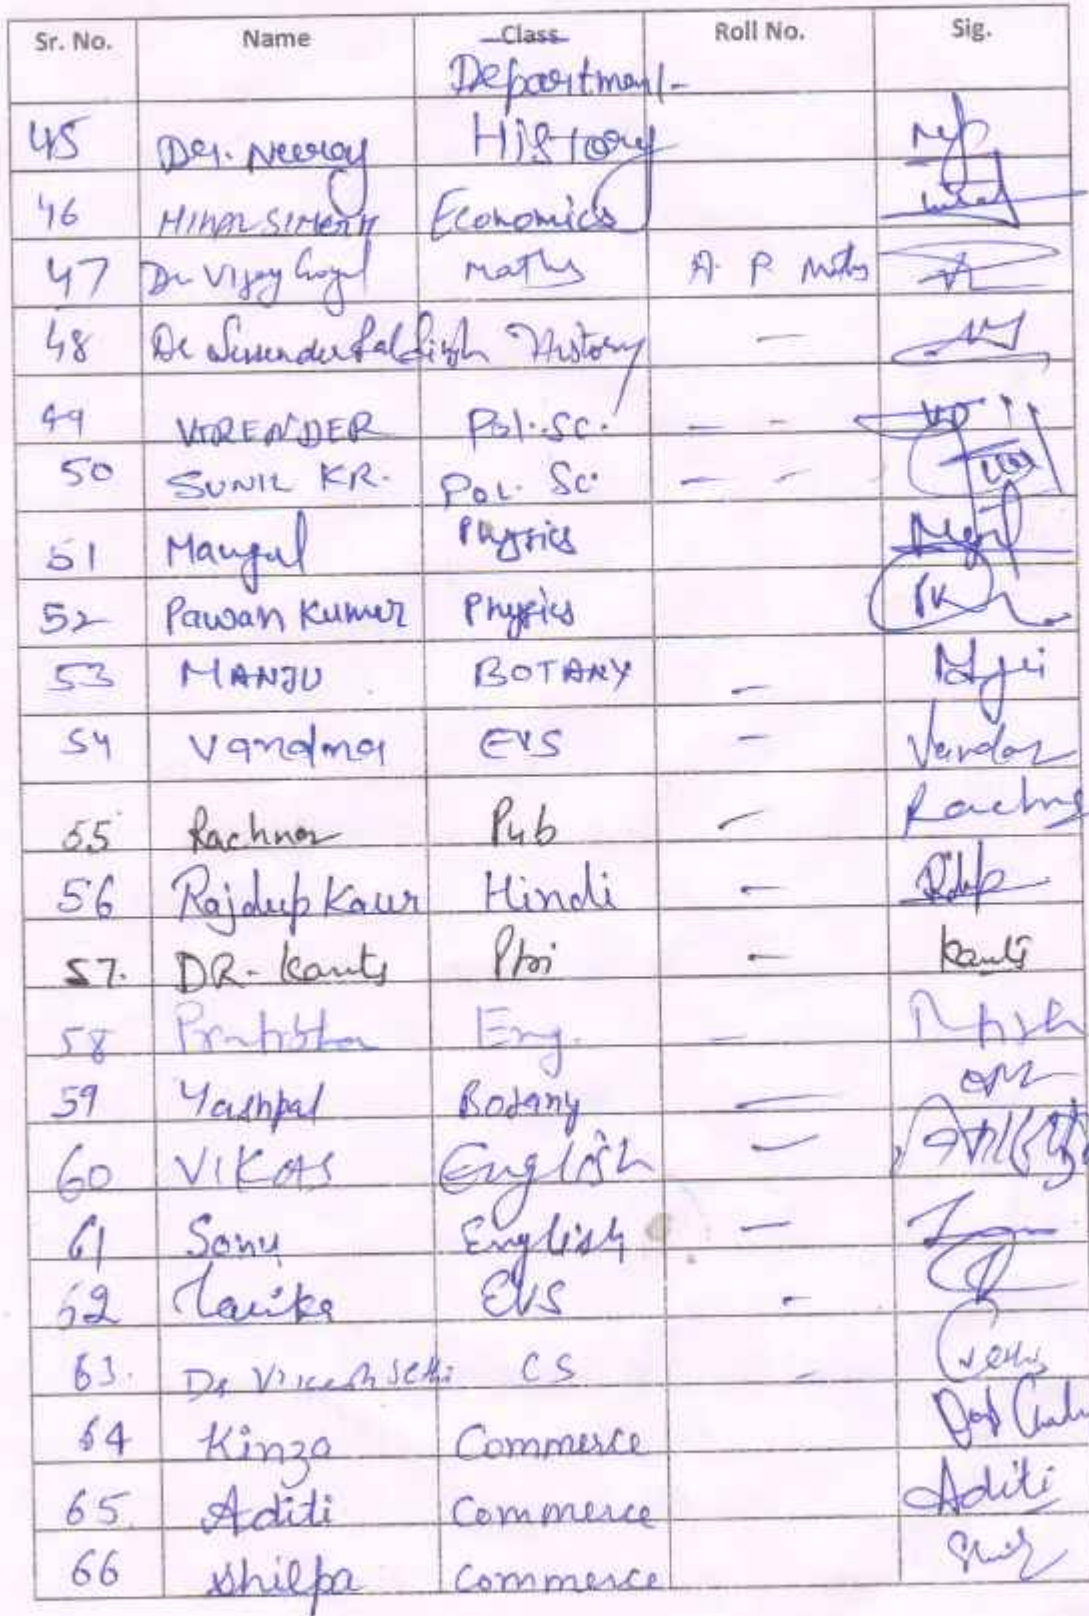 Sr. No. Name Class Roll No. Sig.
Department
45 Dr. Neeraj History
46 Economics
47 Dr Vijay Goyal Maths A. P. Maths
48 De Surender Pal Singh History -
49 VIRENDER Pol. Sc. - -
50 SUNIL KR. POL. Sc. - -
51 Mangal Physics
52 Pawan Kumar Physics PK
53 MANJU BOTANY -
54 Vandna EVS -
55 Rachna Pub - Rachna
56 Rajdeep Kaur Hindi -
57. DR. Kanta -
58 Pratibha Eng. -
59 Yashpal Botany -
60 VIKAS English -
61 Sonu English -
62 Tarika EVS -
63. Sethi CS -
64 Kinza Commerce
65 Aditi Commerce Aditi
66 Shilpa Commerce